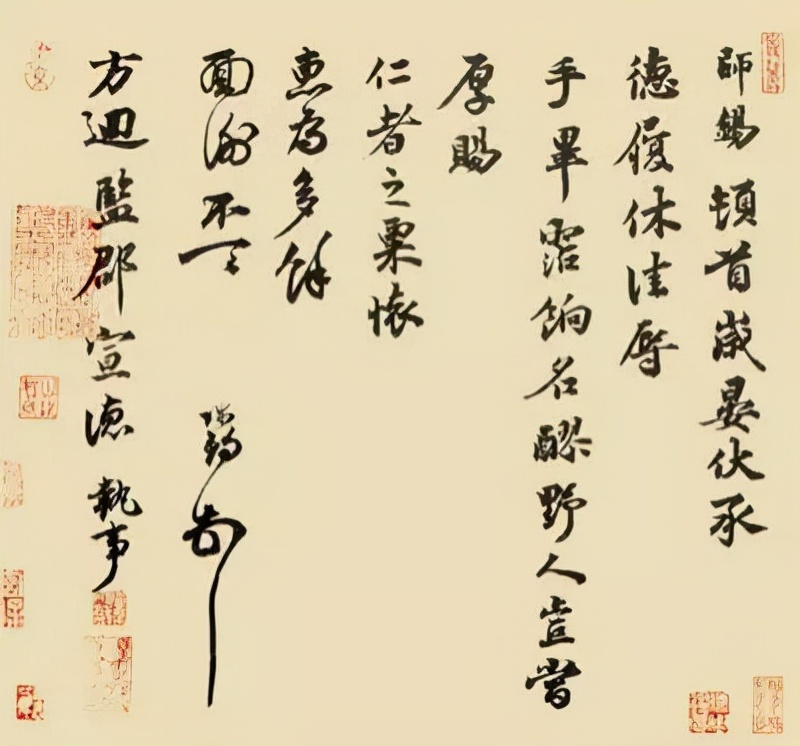 師錫頓首歲晏伏承
德履休佳辱
手畢霑餉名醪野人豈當
厚賜
仁者之粟懷
惠為多餘
面謝不一一 師錫
方迴監郡宣德執事